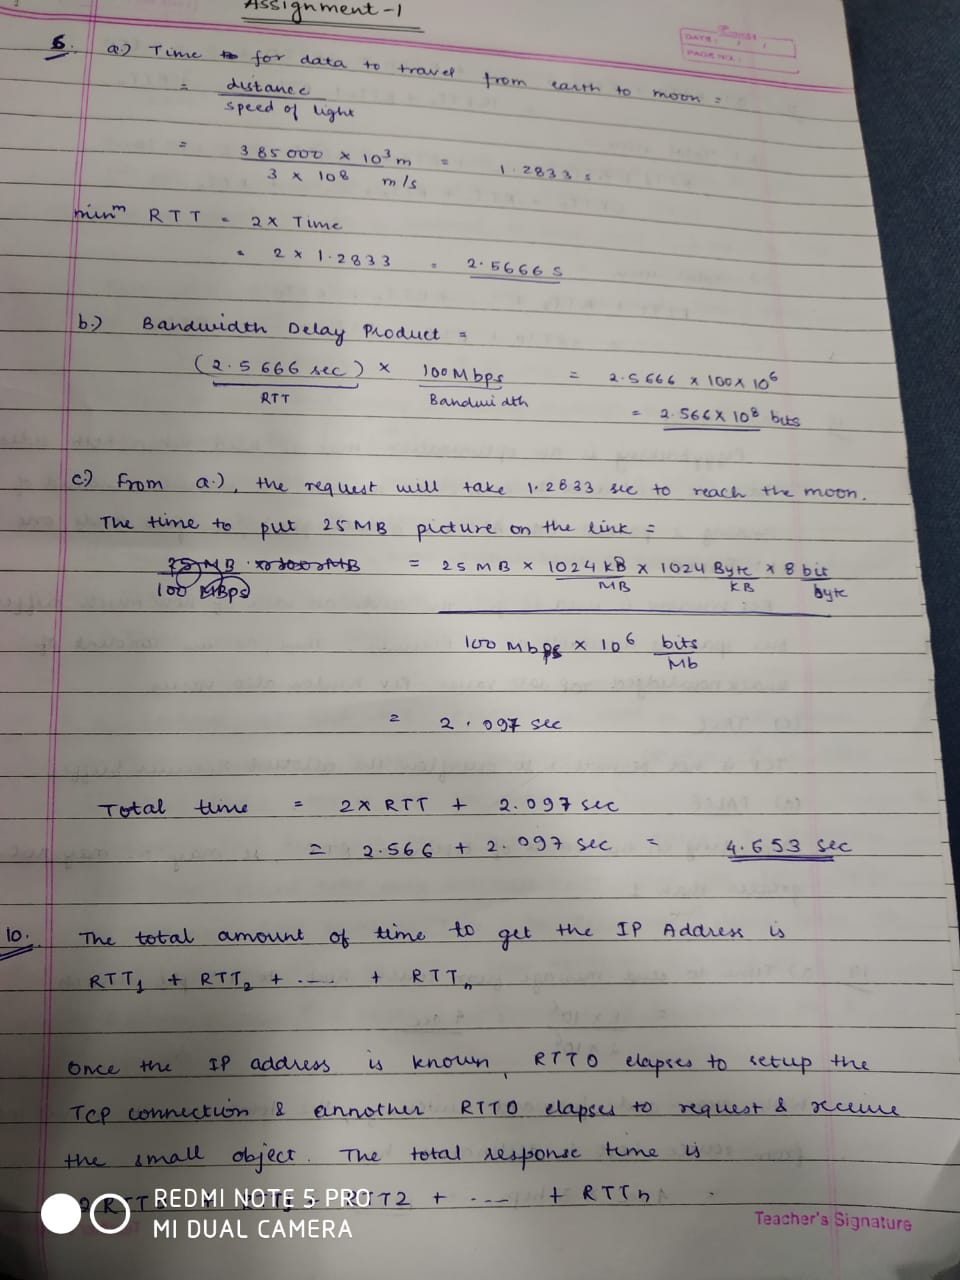 Assignment-1
DATE:
PAGE NO.:
6. a) Time for data to travel from earth to moon =
= distance
speed of light
= 385000 × 10³ m = 1.2833 s
3 × 108 m/s
minᵐ RTT = 2 × Time
= 2 × 1.2833 = 2.5666 s
b.) Bandwidth Delay Product =
(2.5666 sec) × 100 Mbps = 2.5666 × 100 × 10⁶
RTT Bandwidth
= 2.566 × 10⁸ bits
c.) From a.), the request will take 1.2833 sec to reach the moon.
The time to put 25 MB picture on the link =
= 25 MB × 1024 kB × 1024 Byte × 8 bit
MB KB byte
100 MBps
100 Mbps × 10⁶ bits
Mb
= 2.097 sec
Total time = 2 × RTT + 2.097 sec
= 2.566 + 2.097 sec = 4.653 sec
10. The total amount of time to get the IP Address is
RTT₁ + RTT₂ + .... + RTTₙ
Once the IP address is known, RTTO elapses to setup the
TCP connection & annother RTTO elapses to request & receive
the small object. The total response time is
RTT2 + .... + RTTn
REDMI NOTE 5 PRO
MI DUAL CAMERA
Teacher's Signature